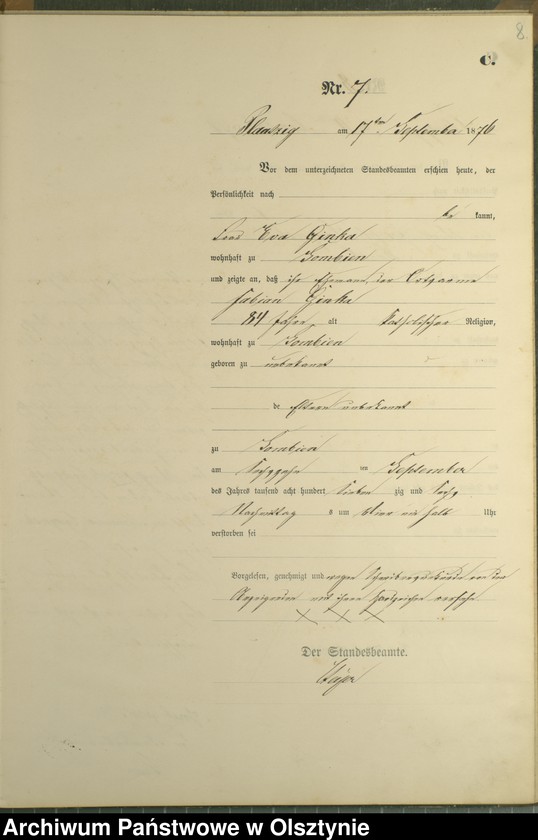 8.
C.
Nr. 7.
am 17ten September 1876
Vor dem unterzeichneten Standesbeamten erschien heute, der
Persönlichkeit nach
be kannt,
Eva Ginka
wohnhaft zu Zombien
und zeigte an, daß ihr Ehemann, der Ortsarme
Fabian Ginka
84 Jahre, alt katholischer Religion,
wohnhaft zu Zombien
geboren zu unbekannt
de Eltern unbekannt
zu Zombien
am sechszehn ten September
des Jahres tausend acht hundert sieben zig und sechs
Nachmittag s um Uhr
verstorben sei
Vorgelesen, genehmigt und wegen Schreibensunkunde von der
Anzeigenden mit ihrem Handzeichen versehen
X X X
Der Standesbeamte.
Archiwum Państwowe w Olsztynie